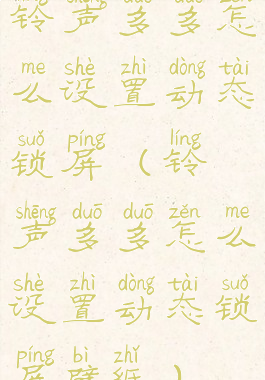 铃声多多怎
me shè zhì dòng tài
么设置动态
suǒ píng líng
锁屏（铃
shēng duō duō zěn me
声多多怎么
shè zhì dòng tài suǒ
设置动态锁
píng bì zhǐ
屏壁纸）